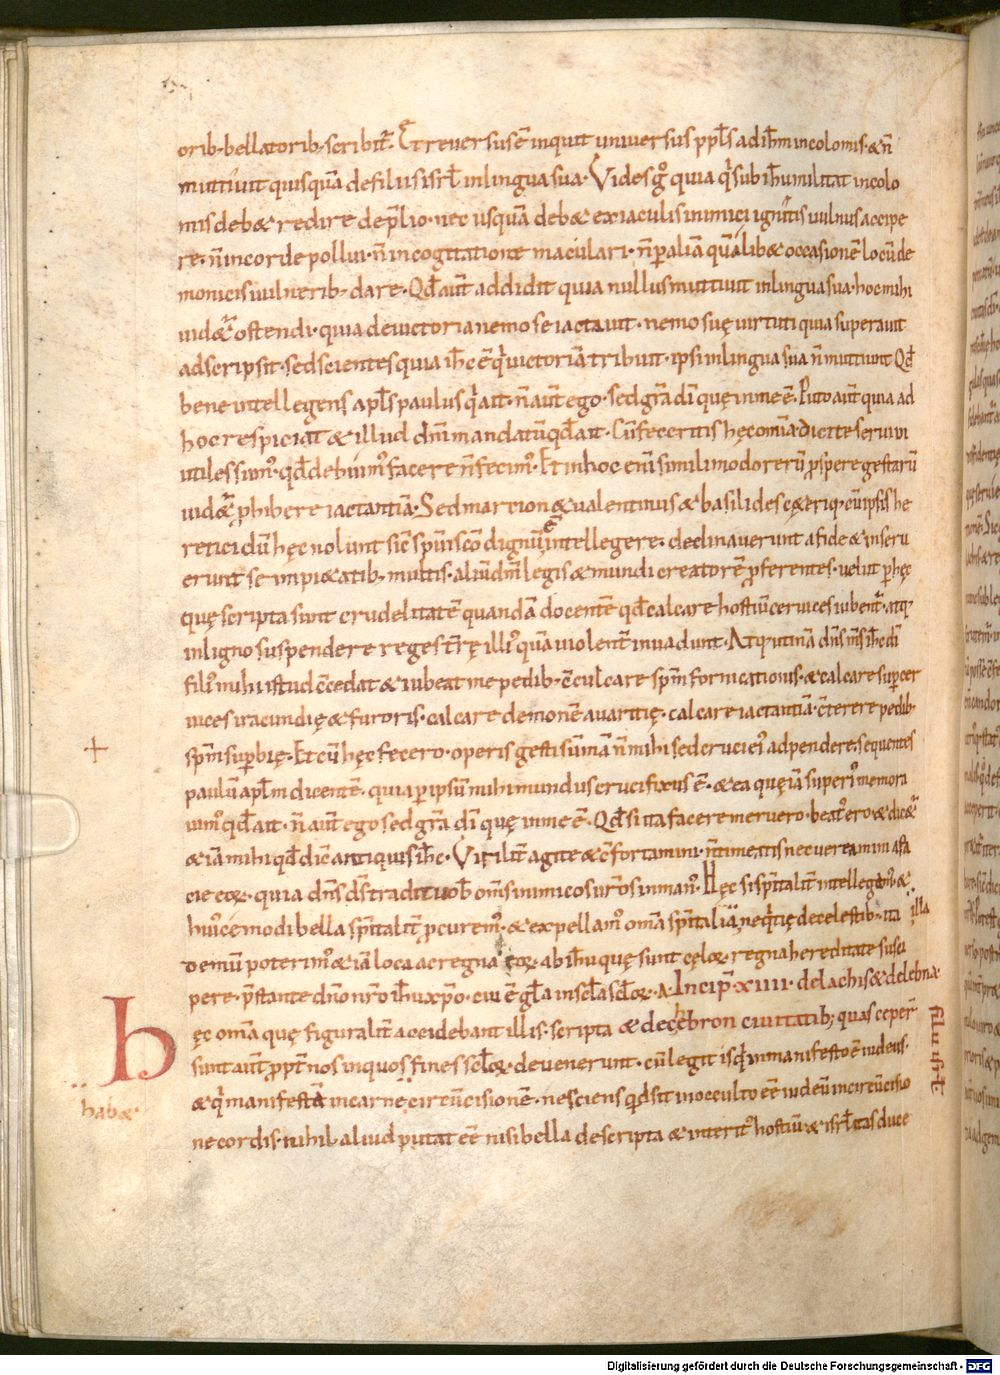 orib· bellatorib· scribit᷒. Et reuersus ē inquit uniuersus ppl̄s ad ih̄m incolomis· & n̄
muttiuit quisquā de filiis isrl̄ in lingua sua· Vides g̊ quia qͥ sub ih̄u militat incolo
mis deb& redire de p̄lio· nec usquā deb& ex iaculis inimici ignitis uulnus accipe
re· n̄ in corde pollui· n̄ in cogitatione maculari· n̄ p aliam quālib& occasionē locū de
monicis uulnerib· dare· Qd̄ aut̄ addidit quia nullus muttiuit in lingua sua· hoc mihi
uid&᷒ ostendi· quia de uictoria nemo se iactauit· nemo suę uirtuti quia superauit
adscripsit· sed scientes quia ih̄c ē qͥ uictoriā tribuit· ipsi in lingua sua n̄ muttiunt Qd̄
bene intellegens apl̄s paulus qͥ ait· n̄ aut̄ ego· sed gr̄a dī quę in me ē· Puto aut̄ quia ad
hoc respiciat & illud dn̄i mandatū qd̄ ait· Cū feceritis hęc om̄ia dicite serui
utiles sumꝰ· qd̄ debuimꝰ facere n̄ fecimꝰ· Et in hoc enī simili modo rerū prospere gestarū
uid&᷒ phibere iactantiā· Sed marcion & ualentinus & basilides c&eriq· cū ipsis he
retici dū hęc nolunt sic sp̄u sc̄o dignū ē intellegere· declinauerunt a fide & inseru
erunt se impi&atib· multis· aliū dm̄ legis & mundi creatorē pferentes· uelut p hęc
quę scripta sunt crudelitatē quandā docentē qd̄ calcare hostiū ceruices iubent᷒· atq·
in ligno suspendere reges t̄rę illiꝰ quā uiolent̄ inuadunt· Atq· utinā dn̄s ms̄ ih̄c dī
filiꝰ mihi istud c̄cedat & iubeat me pedib· c̄culcare sp̄m fornicationis· & calcare super cer
uices iracundię & furoris· calcare demonē auaritię· calcare iactantiā· c̄terere pedib·
sp̄m supbię· Et cū hęc fecero· operis gesti sūmā n̄ mihi sed cruci eiꝰ adpendere· sequentes
paulū apl̄m dicentē· quia p ipsū mihi mundus crucifixus ē· & ea quę iā superiꝰ memora
uimꝰ qd̄ ait· n̄ aut̄ ego sed gr̄a dī quę in me ē· Qd̄ si ita facere meruero· beatꝰ ero & dic&᷒
& iā mihi qd̄ dic̄ antiquis ih̄c· Virilit̄ agite & c̄fortamini· n̄ timeatis nec uereamini a fa
cie eoꝝ· quia dn̄s ds̄ tradit uob̄ om̄s inimicos ur̄os in manꝰ· Hęc si sp̄italit̄ intellegimꝰ &
huiꝰcemodi bella sp̄italit̄ pcuremꝰ· & expellamꝰ om̄ia sp̄italia nequitię de celestib· ita illa
demū poterimꝰ & iā loca ac regna eoꝝ ab ih̄u quę sunt cęloꝝ· regna hereditate susci
pere· p̄stante dn̄o nr̄o ih̄u xp̄o· cui ē gl̄a in sc̄la sc̄loꝝ· a· Incip̄· xiiii· de lachis & de lebna·
Hęc om̄ia quę figuralit̄ accidebant illis· scripta & de chebron ciuitatib; quas ceper̄
sunt aut̄ ppt̄ nos in quos fines scl̄oꝝ· deuenerunt· cū legit is qͥ in manifesto ē iudeus· filii isrl̄
habæ & qͥ manifestā in carne circūcisionē· nesciens qd̄ sit in occulto eē iudeū in circūcisio
ne cordis· nihil aliud putat eē nisi bella descripta & interitꝰ hostiū & isrl̄itas duce
Digitalisierung gefördert durch die Deutsche Forschungsgemeinschaft - DFG